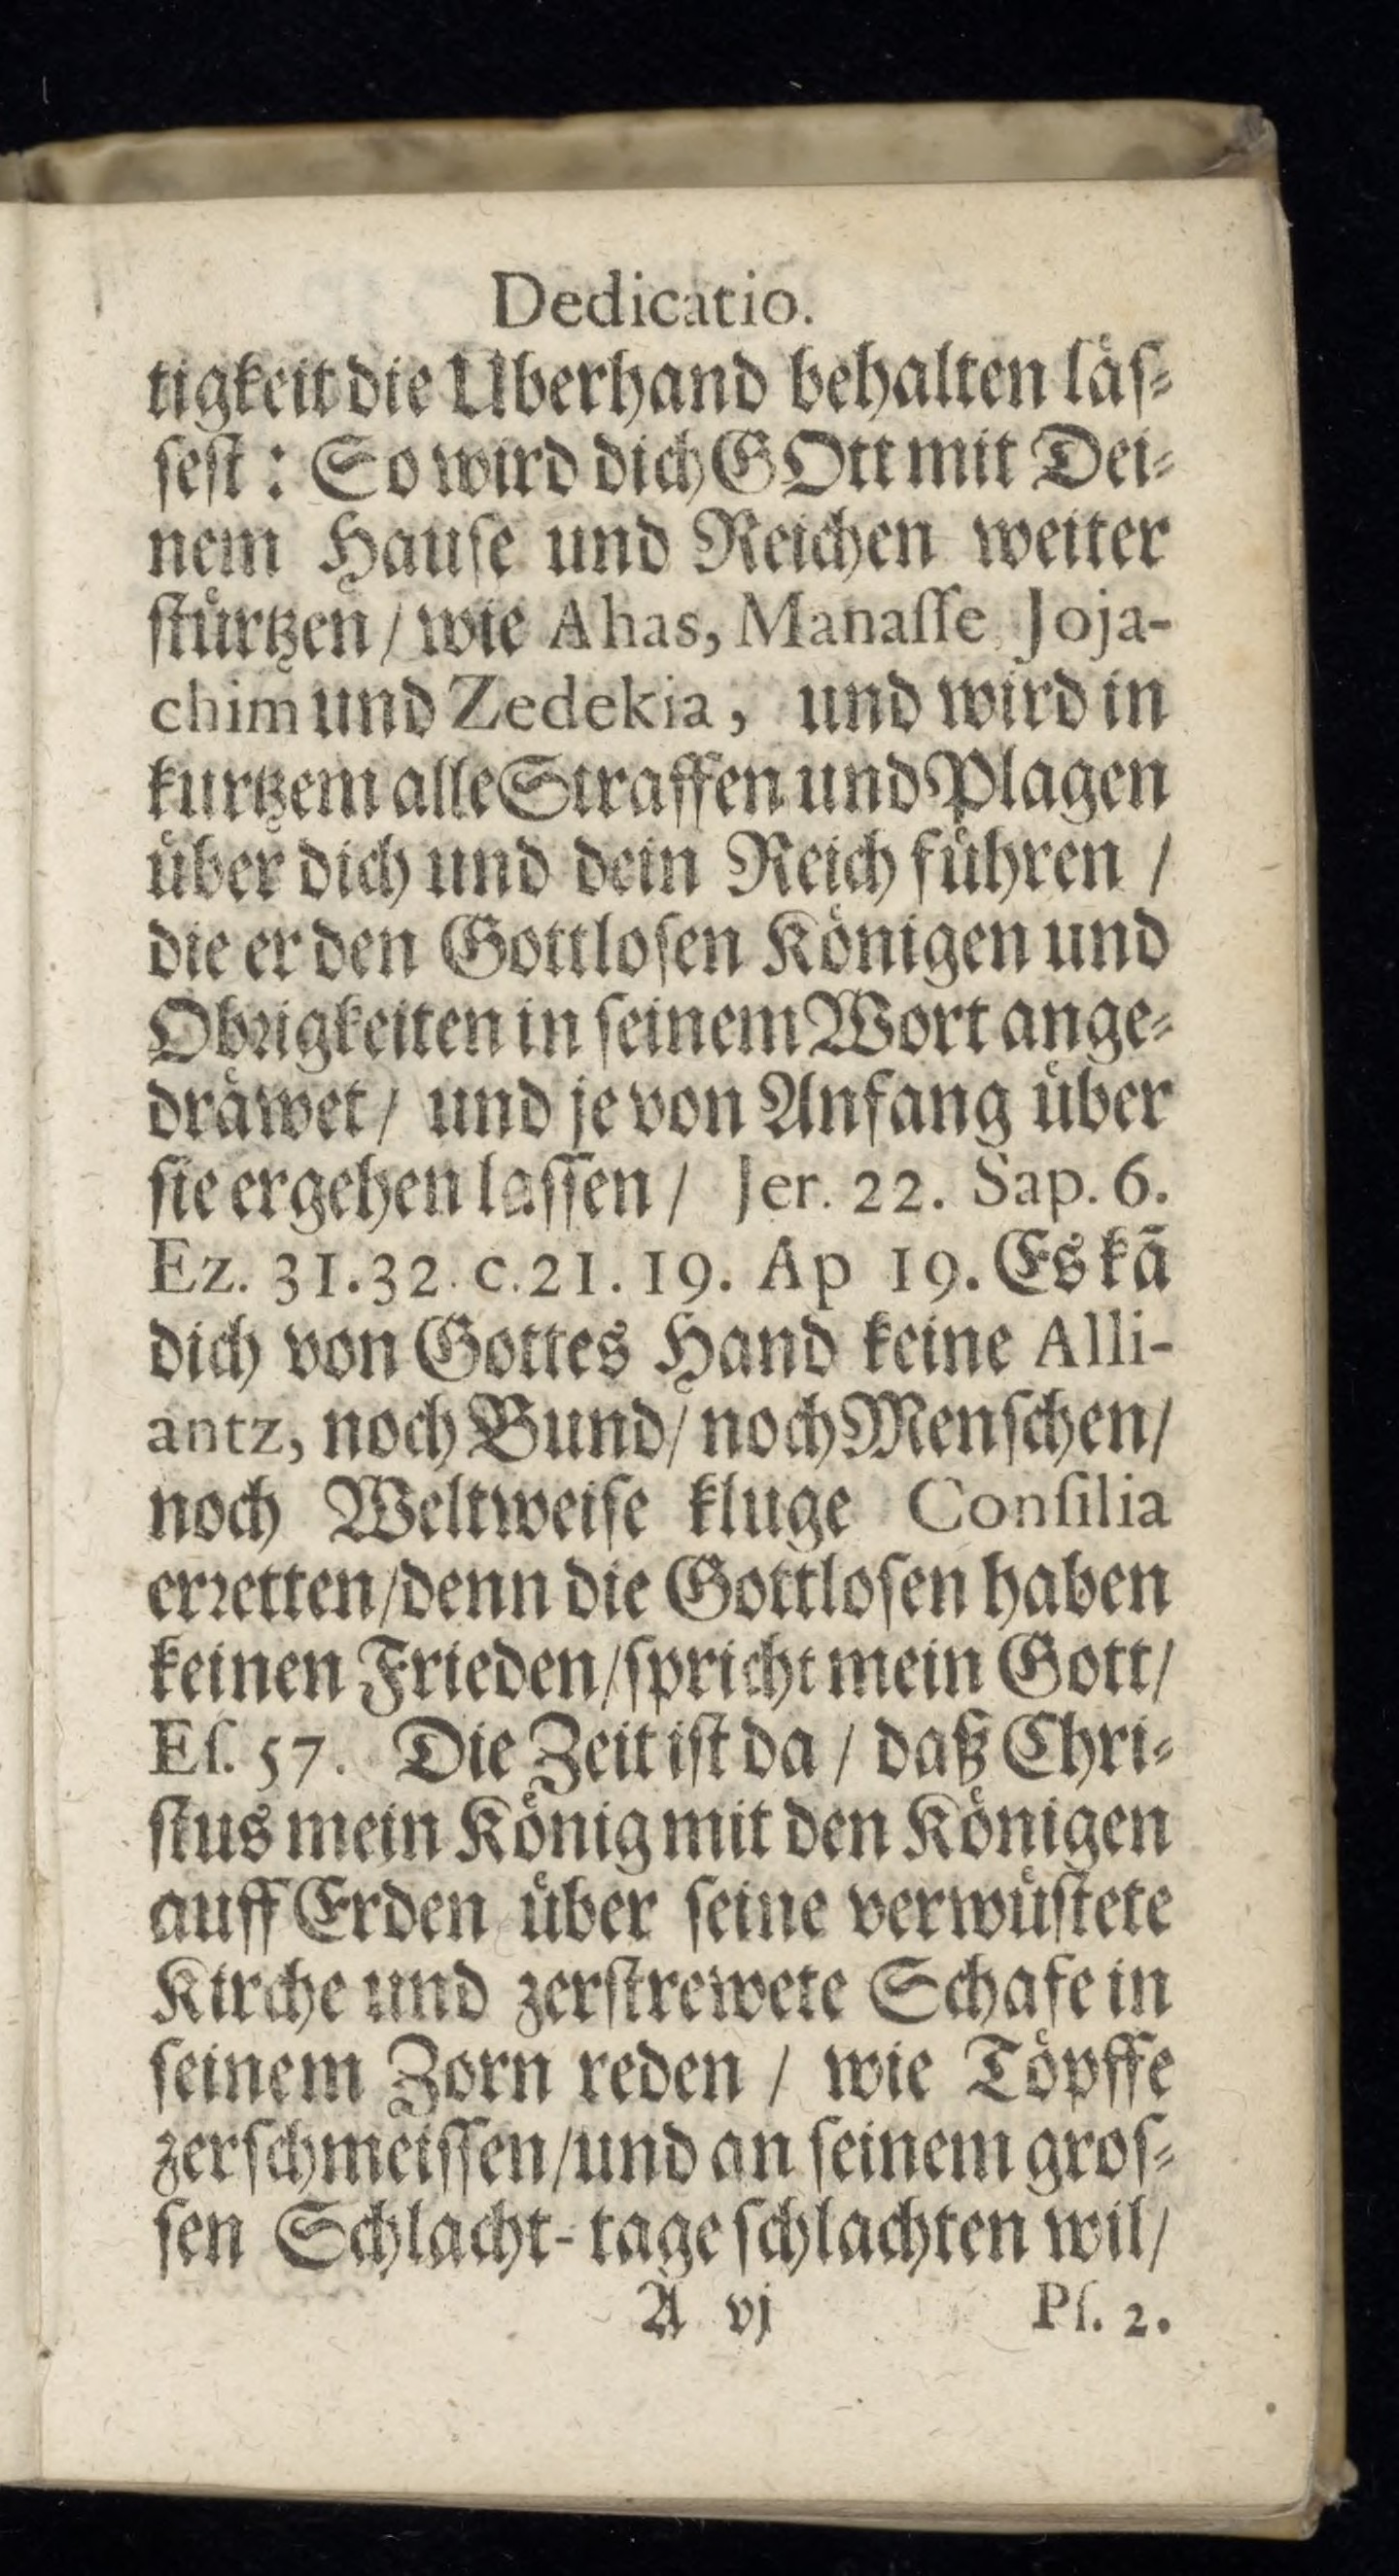 Dedicatio.
tigkeit die Uberhand behalten läſ⸗
ſeſt: So wird dich GOtt mit Dei⸗
nem Hauſe und Reichen weiter
ſtürtzen / wie Ahas, Manaſſe, Joja-
chim und Zedekia, und wird in
kurtzem alle Straffen und Plagen
über dich und dein Reich führen /
die er den Gottloſen Königen und
Obꝛigkeiten in ſeinem Wort ange⸗
dräwet / und je von Anfang über
ſie ergehen laſſen / Jer. 22. Sap. 6.
Ez. 31.32. c.21. 19. Ap 19. Es kā
dich von Gottes Hand keine Alli-
antz, noch Bund / noch Menſchen /
noch Weltweiſe kluge Conſilia
erꝛetten / denn die Gottloſen haben
keinen Frieden / ſpricht mein Gott /
Eſ. 57. Die Zeit iſt da / daß Chri⸗
ſtus mein König mit den Königen
auff Erden über ſeine verwüſtete
Kirche und zerſtrewete Schafe in
ſeinem Zorn reden / wie Töpffe
zerſchmeiſſen / und an ſeinem groſ⸗
ſen Schlacht-tage ſchlachten wil /
A vj Pſ. 2.